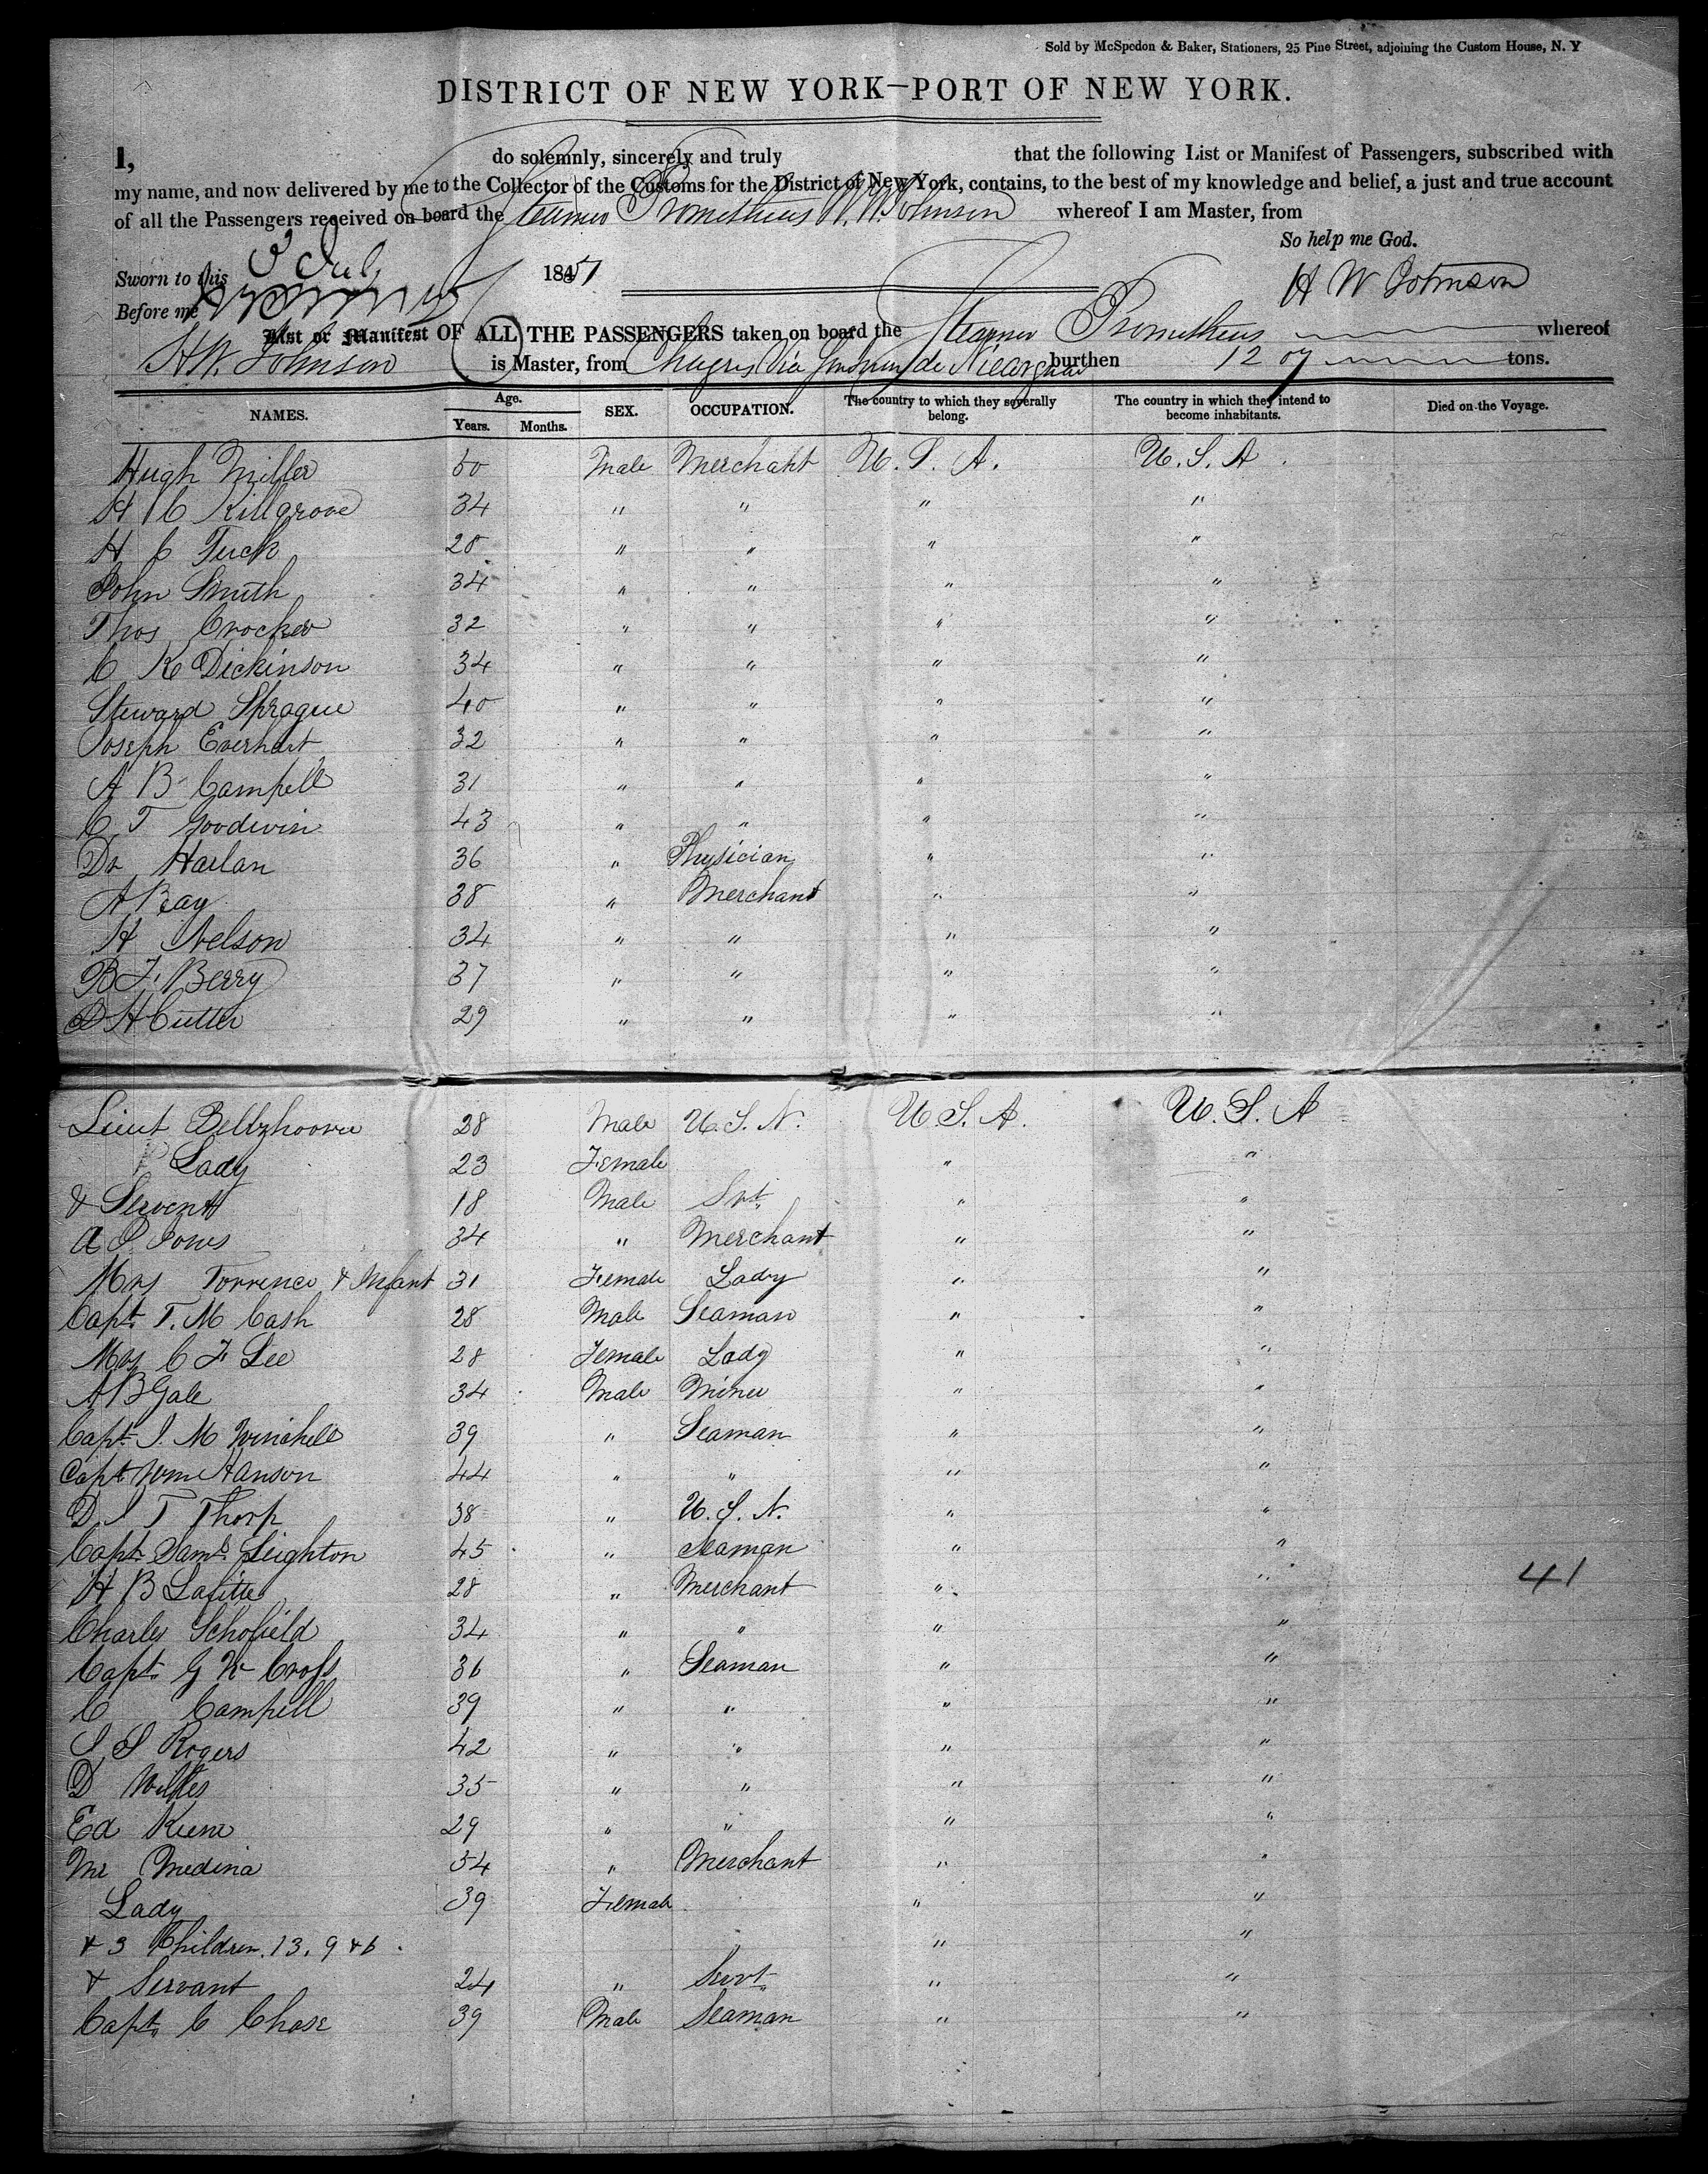 Sold by McSpedon & Baker, Stationers, 25 Pine Street, adjoining the Custom House, N. Y
DISTRICT OF NEW YORK—PORT OF NEW YORK.
I, do solemnly, sincerely and truly that the following List or Manifest of Passengers, subscribed with
my name, and now delivered by me to the Collector of the Customs for the District of New York, contains, to the best of my knowledge and belief, a just and true account
of all the Passengers received on board the Steamer Prometheus H. W. Johnson whereof I am Master, from
So help me God.
Sworn to this 3 1851
H W Johnson
Before me
List or Manifest OF ALL THE PASSENGERS taken on board the Steamer Prometheus whereof
H W. Johnson is Master, from Chagres Via burthen 1207 tons.
NAMES. Age. Years. Months. SEX. OCCUPATION. The country to which they severally belong. The country in which they intend to become inhabitants. Died on the Voyage.
Hugh Miller 50 Male Merchant U. S. A. U. S. A.
H C Killgrove 34 " " " "
H C Tuck 28 " " " "
John Smith 34 " " " "
Thos Crocker 32 " " " "
C K Dickinson 34 " " " "
Steward Sprague 40 " " " "
Joseph Everhart 32 " " " "
A B Campell 31 " " " "
C T Goodwin 43 " " " "
Dr Harlan 36 " Physician " "
A Ray 38 " Merchant " "
H Nelson 34 " " " "
B F. Berry 37 " " " "
D H Cutter 29 " " " "
Lieut 28 Male U. S. N. U. S. A. U. S. A
Lady 23 Female " "
& Servent 18 Male Svt " "
A S Jones 34 " Merchant " "
Mrs Torrence & Infant 31 Female Lady " "
Capt. T. M Cash 28 Male Seaman " "
Mrs C F Lee 28 Female Lady " "
A B Gale 34 Male Miner " "
Capt. J. M Winchell 39 " Seaman " "
Capt Wm Hanson 44 " " " "
D. S T Thorp 38 " U. S. N. " "
Capt. Saml. Leighton 45 " Seaman " "
H B Lafitte 28 " Merchant " " 41
Charles Schofield 34 " " " "
Capt. G W Cross 36 " Seaman " "
C Campell 39 " " " "
S S Rogers 42 " " " "
D Wilkes 35 " " " "
Ed Keene 29 " " " "
Mr Medina 54 " Merchant " "
Lady 39 Female " "
& 3 Children, 13, 9 & 6 " "
& Servant 24 " Servt " "
Capt. C Chase 39 Male Seaman " "